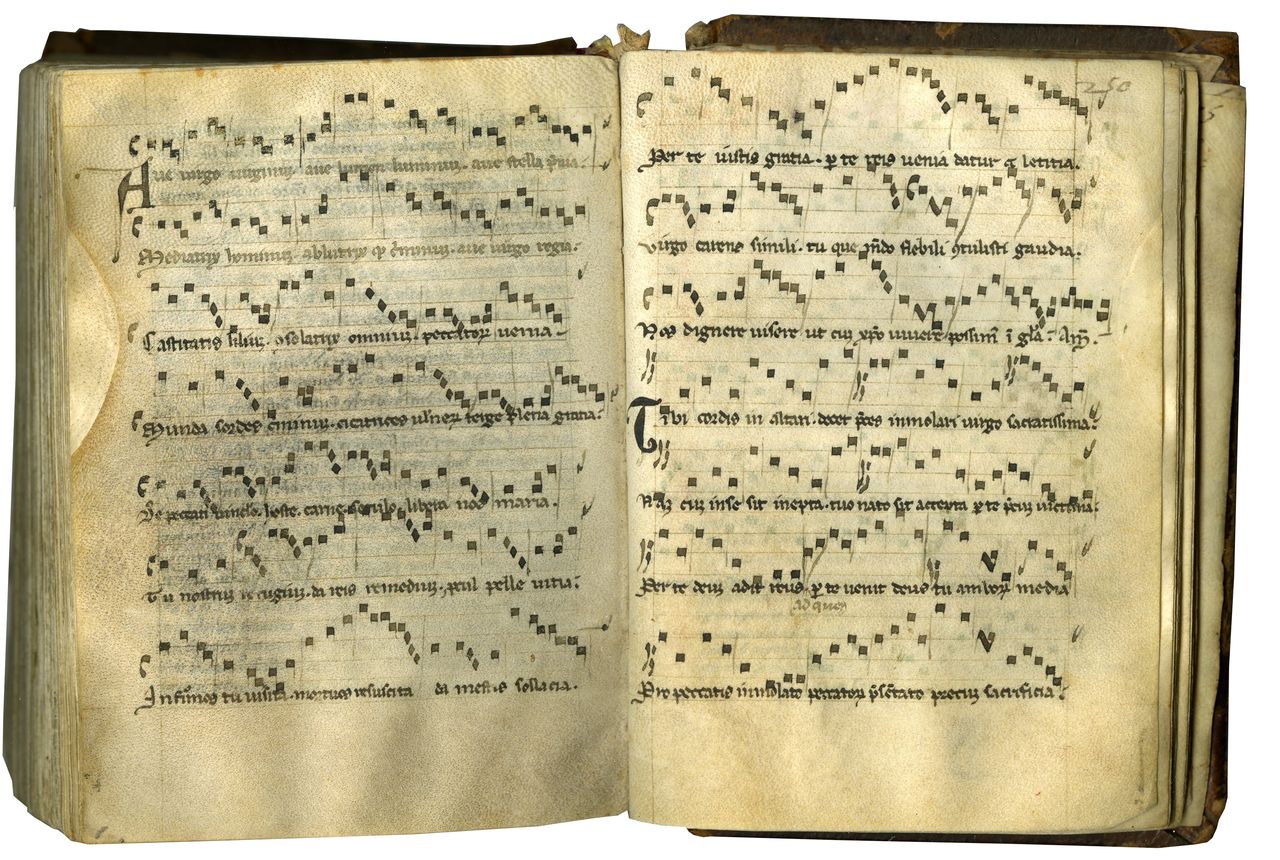 Aue uirgo uirginum aue lumen luminum aue stella
Mediatrix hominum ablutrix criminum aue uirgo regia
Castitatis lilium osolatrix omnium peccatorum uenia
Munda sordes criminum cicatrices terge plena gratia
peccati uinclo hoste carne seculo libera nos maria
Tu nostrum refugium da reis remedium pcul pelle uitia
Infirmos tu uisita mortuos resuscita da mestis sollacia
250
Per te iustis gratia p te reis uenia datur q letitia
Virgo carens simili tu que mdo flebili gtulisti gaudia
Nos dignere uisere ut cum xpo uiuere possim i gla Am
Tibi cordis in altari decet pces inmolari uirgo sacratissima
Nam cum in se sit inepta tuo nato sit accepta p te pcum uictima
Per te deum adit reus p te uenit deus tu amborum media
ad quem
Pro peccatis inmolato peccatorum psentato precum sacrificia